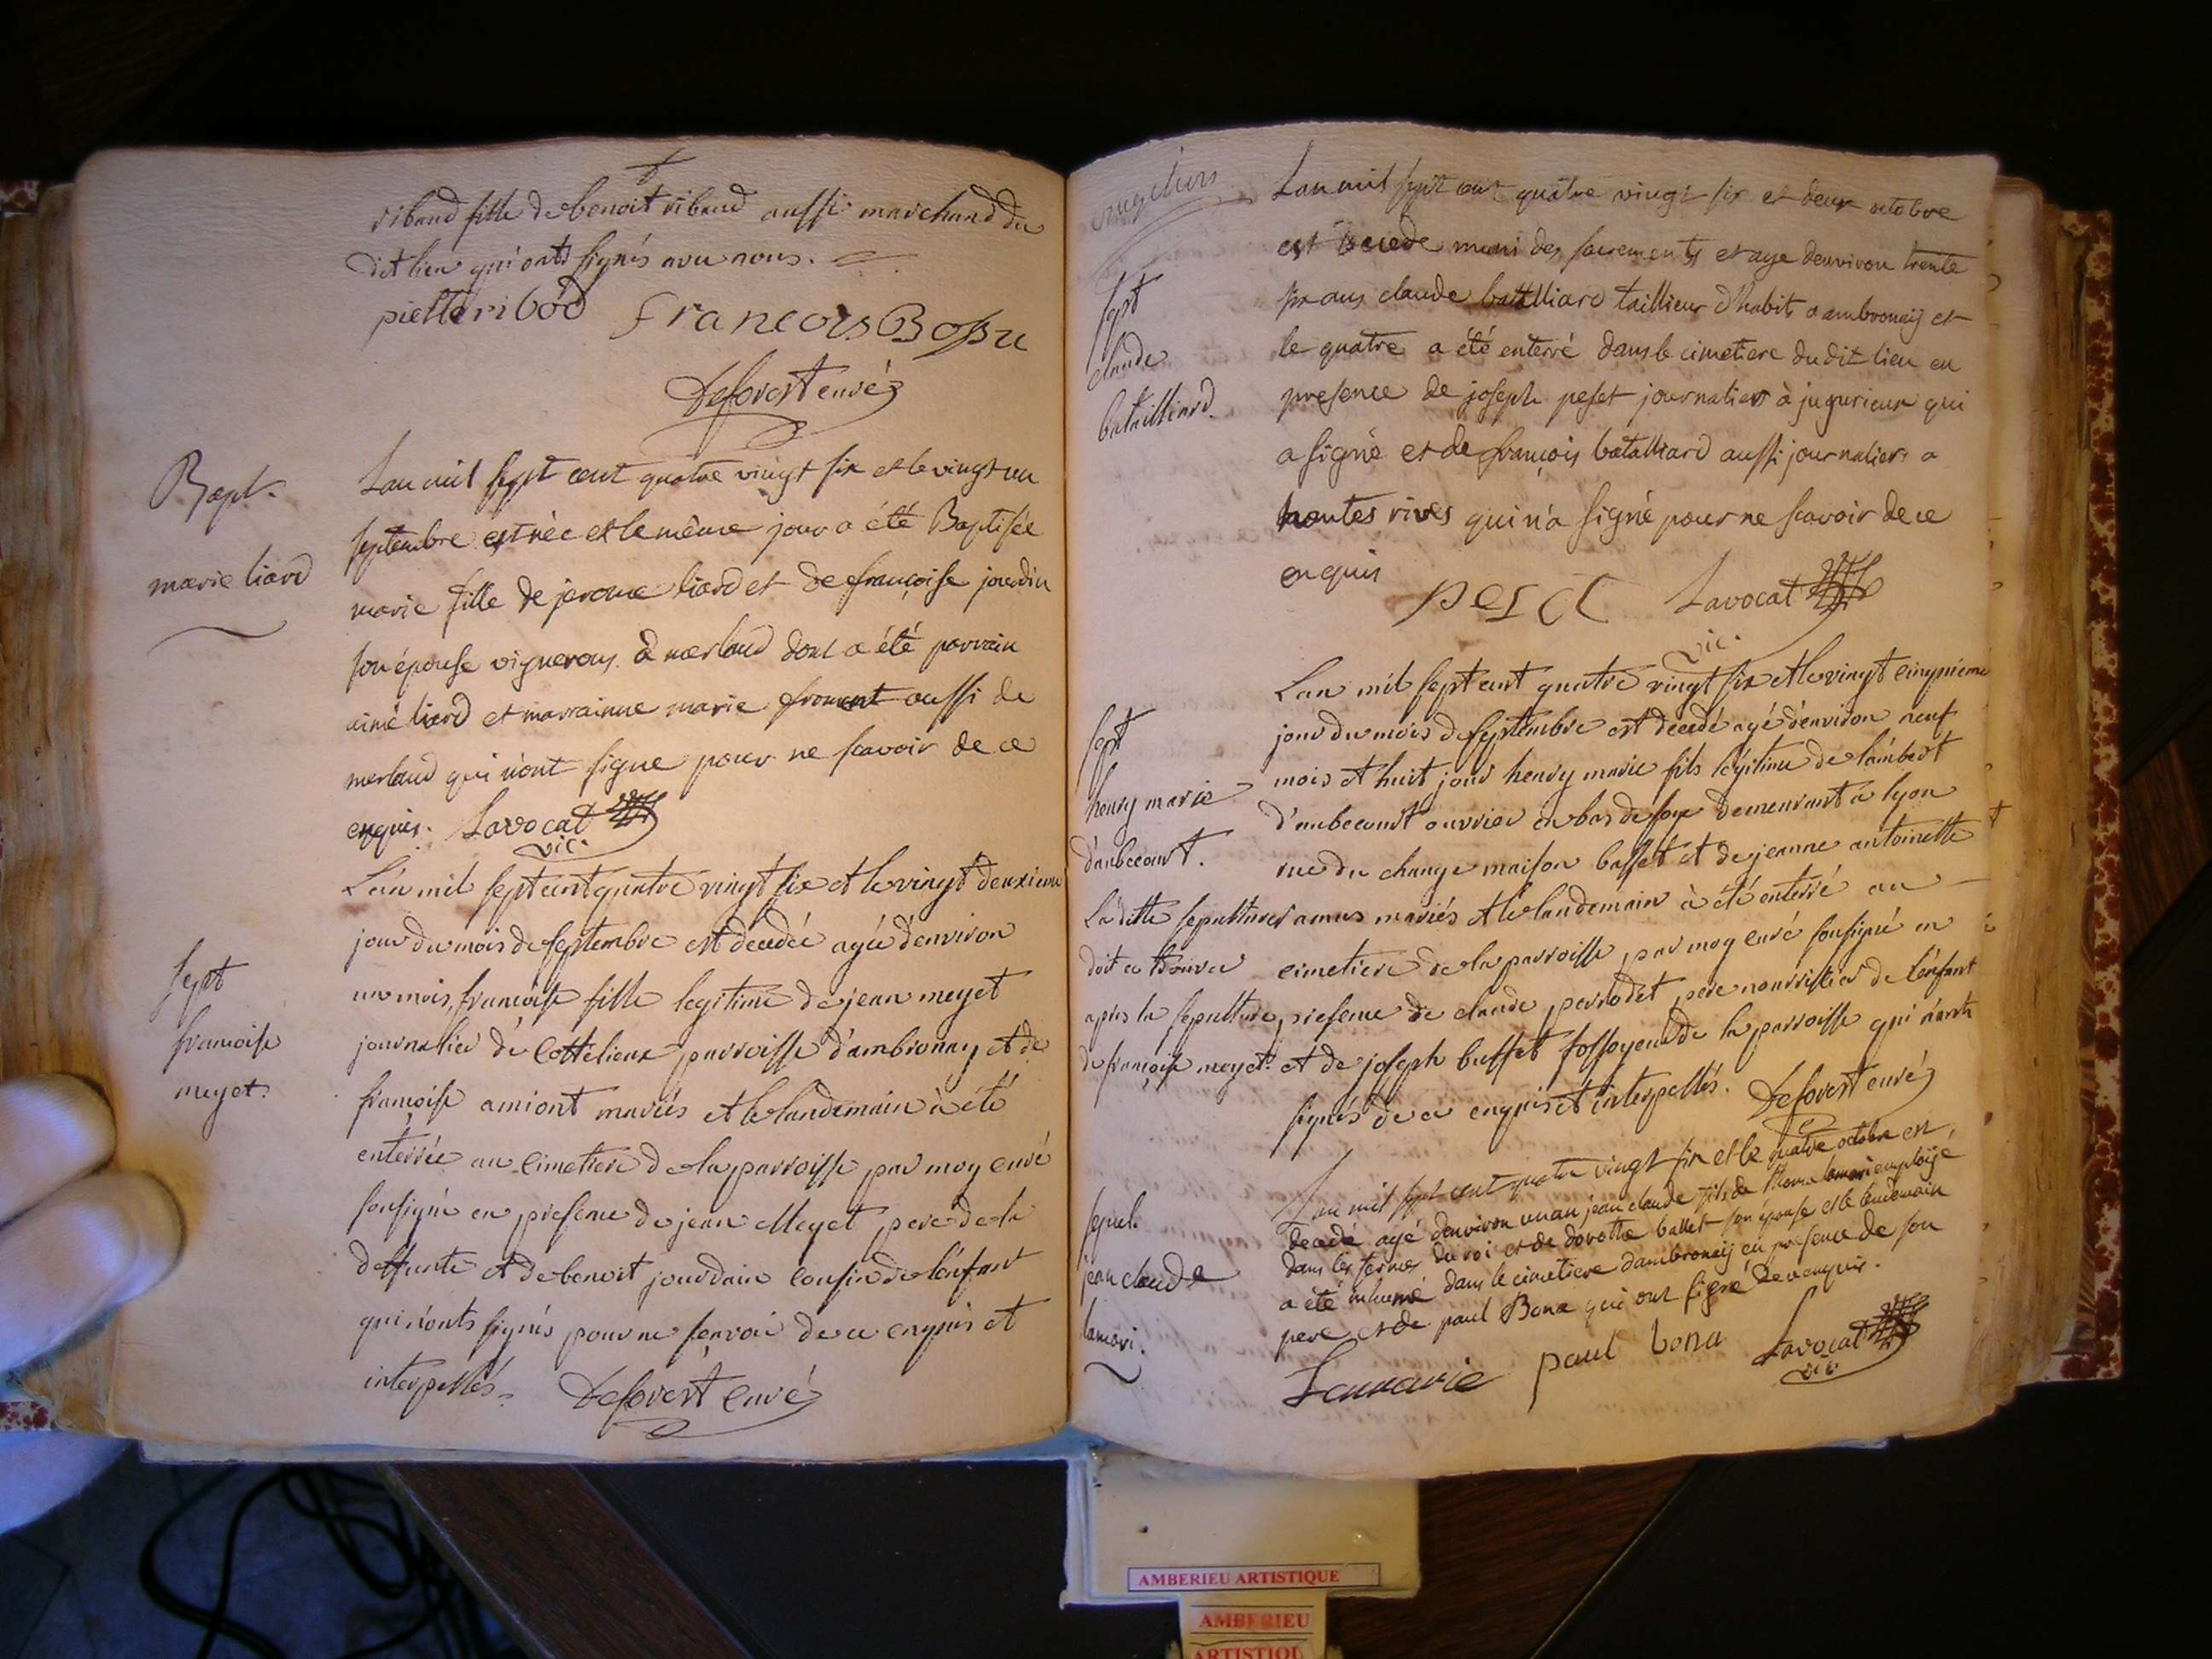 ribaud fille de benoit ribaud aussi marchand du
dit lieu qui onts signés avec nous.
piette ribôd francois Bossu
Deforest curé
Bapt.
marie liard
Lan mil sept cent quatre vingt six et le vingt un
septembre est née et le même jour a été Baptisée
marie fille de jerome liard et de françoise jourdin
son épouse vignerons a merland dont a été parrain
aimé liard et marrainne marie froment aussi de
merland qui n'ont signe pour ne scavoir de ce
enquis. Lavocat
vic.
sept
francoise
meyet.
L'an mil sept cent quatre vingt six et le vingt deuxieme
jour du mois de septembre est decedée agée d'environ
un mois, francoise fille legitime de jean meyet
journalier de Cottelieux parroisse d'ambronay et de
francoise amiont mariés et le landemain à été
enterrée au cimetiere de la parroisse par moy curé
sousigné en presence de jean Meyet pere de la
deffunte et de benoit jourdain cousin de l'enfant
qui n'onts signés pour ne scavoir de ce enquis et
interpellés. Deforest curé
sept
claude
batailliard.
Lan mil sept cent quatre vingt six et deux octobre
est decede muni des sacrements et age denviron trente
six ans claude batalliard taillieur d'habits a ambronaij et
le quatre a été enterré dans le cimetiere du dit lieu en
presence de joseph peset journalier à jujurieux qui
a signé et de françois batalliard aussi journalier a
hautes rives qui n'a signé pour ne scavoir de ce
enquis
peset Lavocat
vic.
sept
henry marie
d'aubecourt.
L'an mil sept cent quatre vingt six et le vingt cinquieme
jour du mois de septembre est decedé agé d'environ neuf
mois et huit jour henry marie fils légitime de lambert
d'aubecourt ouvrier en bas de soye demeurant a lyon
rue du change maison basset et de jeanne antoinette
amus mariés et le landemain à été enterré au
cimetiere de la parroisse par moy curé sousigné en
presence de claude perrodet pere nourrissier de l'enfant
et de joseph buffet fossoyeur de la parroisse qui n'onts
signés de ce enquis et interpellés. Deforest curé
La ditte sepulture
doit ce trouver
apres la sepulture
de françoise meyet.
sepul.
jean claude
lamari.
Lan mil sept cent quatre vingt six et le quatre octobre est
decedé agé denviron un an jean claude fils de thoma lamari employé
dans les fermes du roi et de dorothé ballet son épouse et le lendemain
a été inhumé dans le cimetiere dambronaij en presence de son
pere et de paul Bona qui ont signé de ce enquis.
paul bona Lavocat
vic
AMBERIEU ARTISTIQUE
AMBERIEU